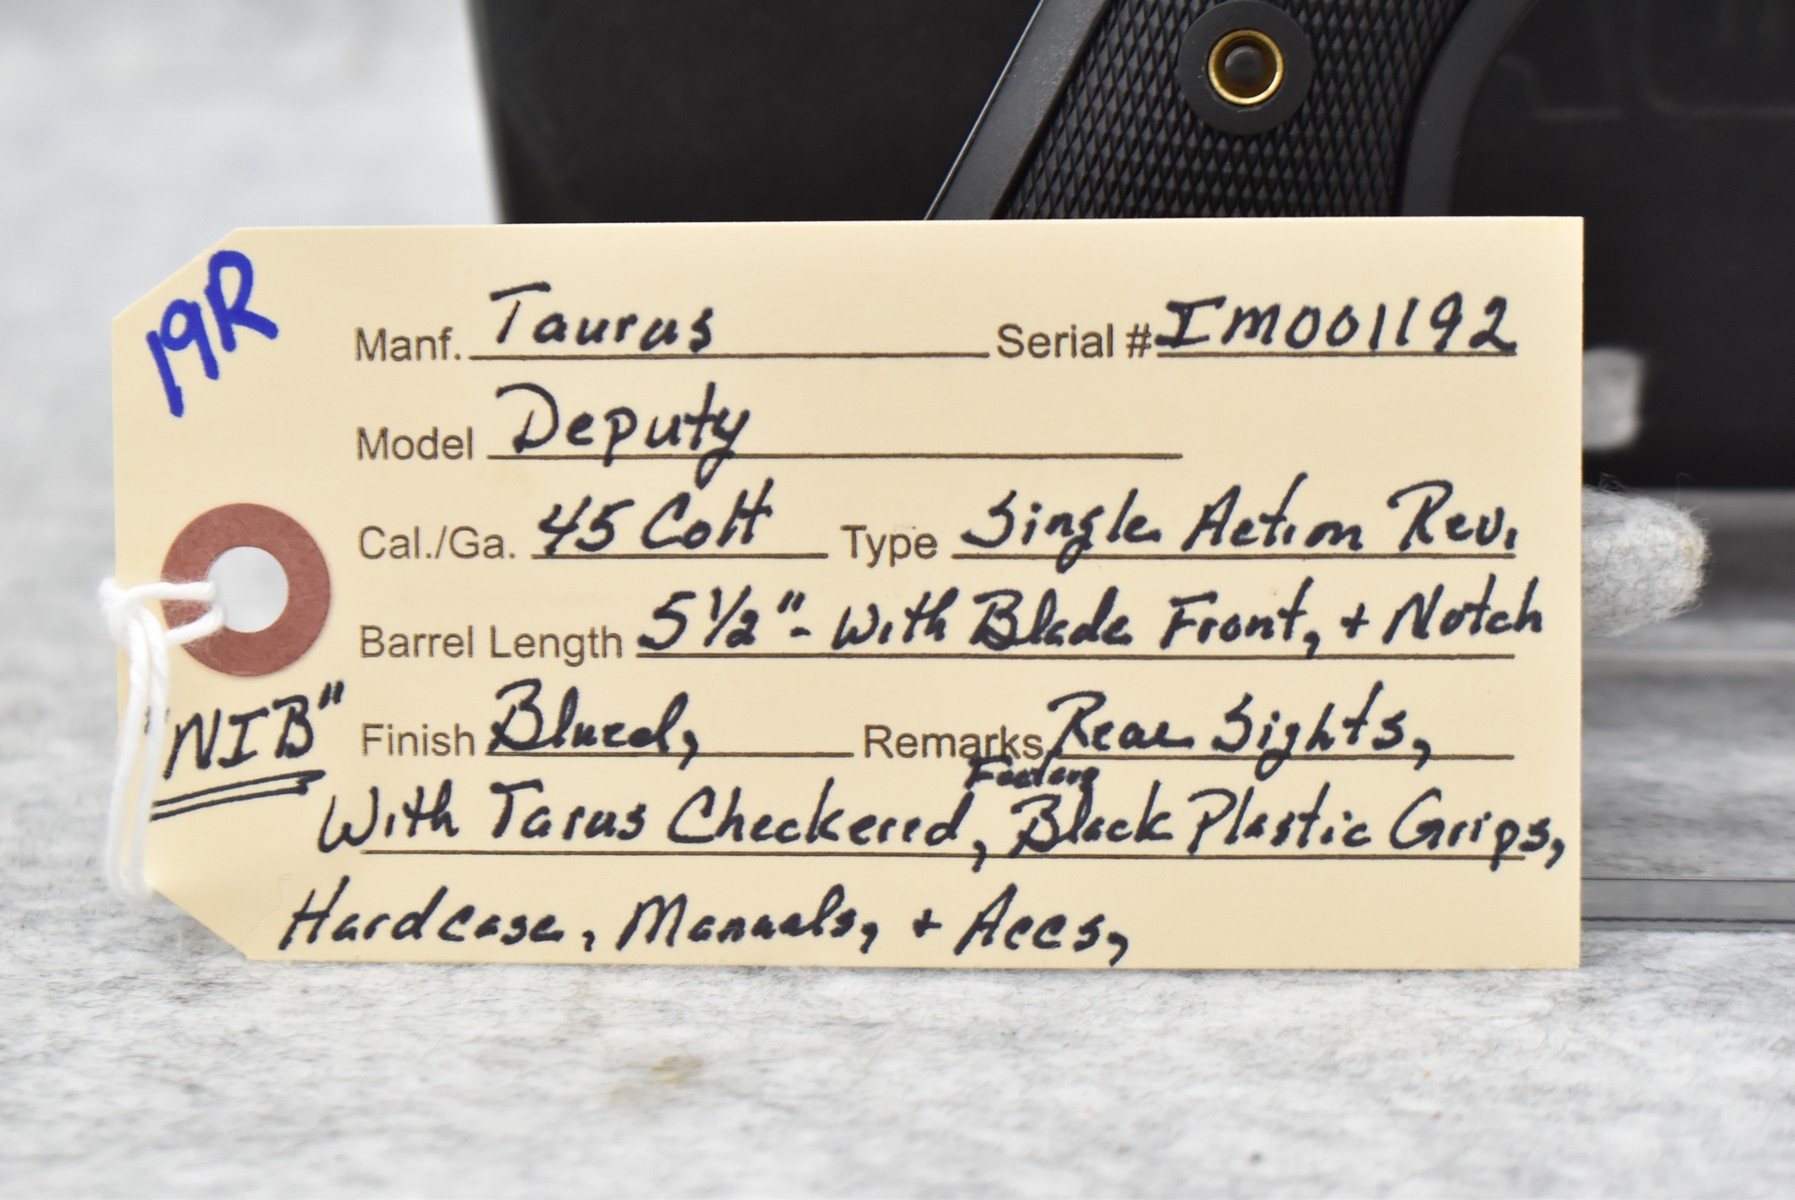 19R
Manf. Taurus Serial # IM001192
Model Deputy
Cal./Ga. 45 Colt Type Single Action Rev.
Barrel Length 5 1/2" - With Blade Front, + Notch
"NIB" Finish Blued, Remarks Rear Sights,
Factory
With Tarus Checkered, Black Plastic Grips,
Hardcase, Manuals, + Accs,